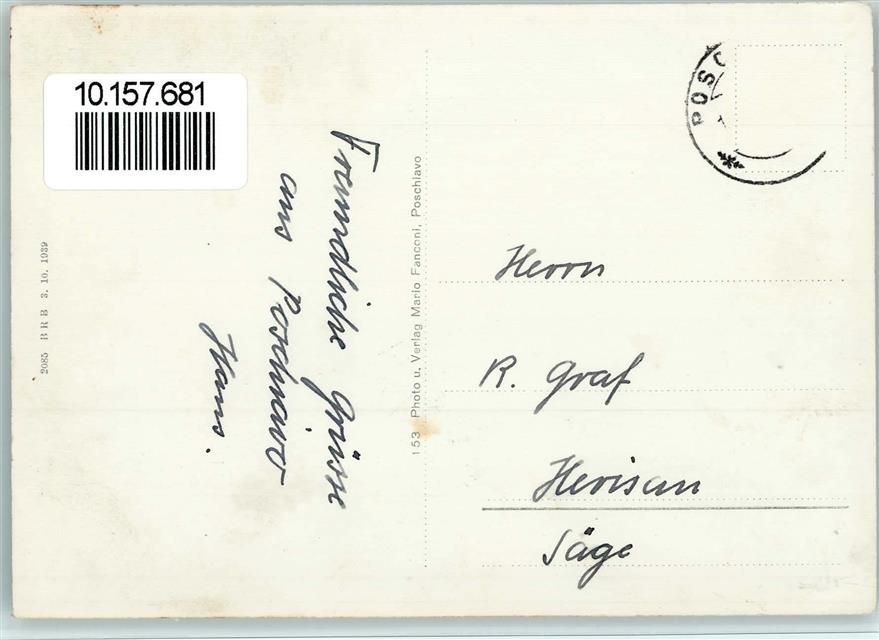 10.157.681
Freundliche Grüsse
aus Poschiavo
Hans.
2085 BRB 3. 10. 1939
153 Photo u. Verlag Mario Fanconi, Poschiavo
POSC
Herrn
R. Graf
Herisau
Säge